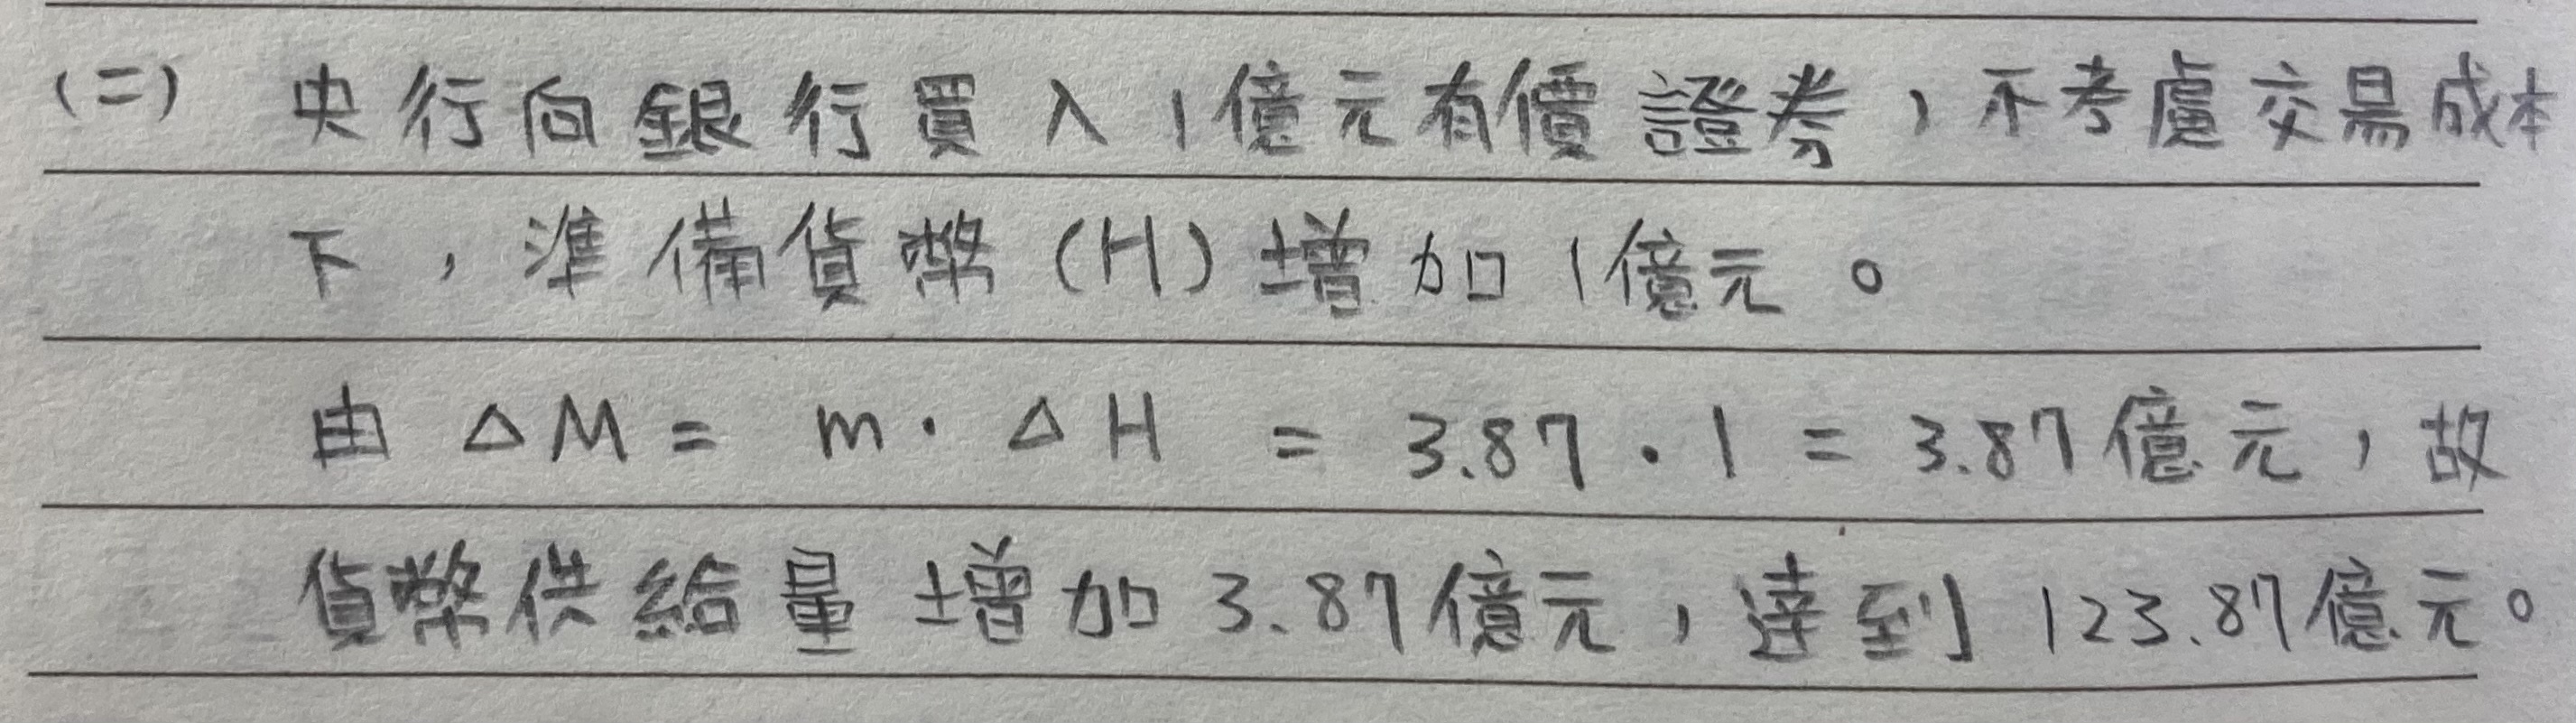 (二) 央行向銀行買入1億元有價證券,不考慮交易成本
下,準備貨幣(H)增加1億元。
由 ΔM = m · ΔH = 3.87 · 1 = 3.87億元,故
貨幣供給量增加3.87億元,達到123.87億元。